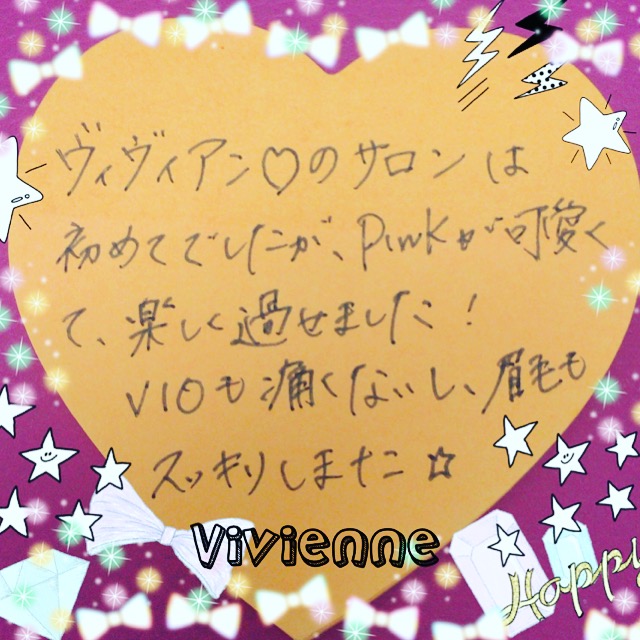 ヴィヴィアン♡のサロンは
初めてでしたが、Pinkが可愛く
て、楽しく過せました！
VIOも痛くないし、眉毛も
スッキリしました☆
Vivienne
Happy